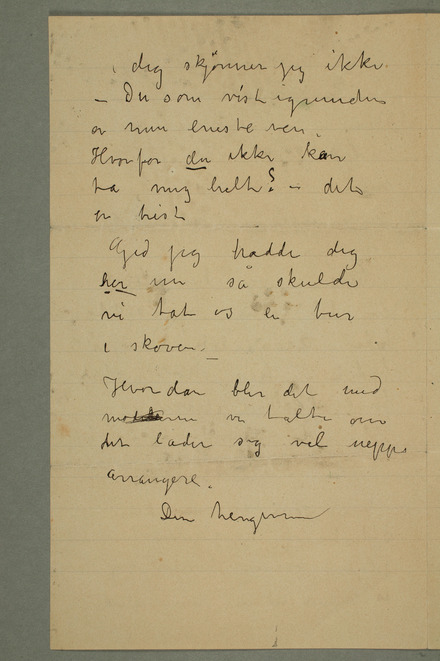 i dig skjønner jeg ikke.
– Du som vist igrunden
er min eneste ven.
Hvorfor du ikke kan
ta mig helt? – det
er trist
Gid jeg hadde dig
her nu så skulde
vi tat os en tur
i skoven. –
Hvordan blir det med
vi talte om
det lader sig vel neppe
arrangere.
Din hengivne